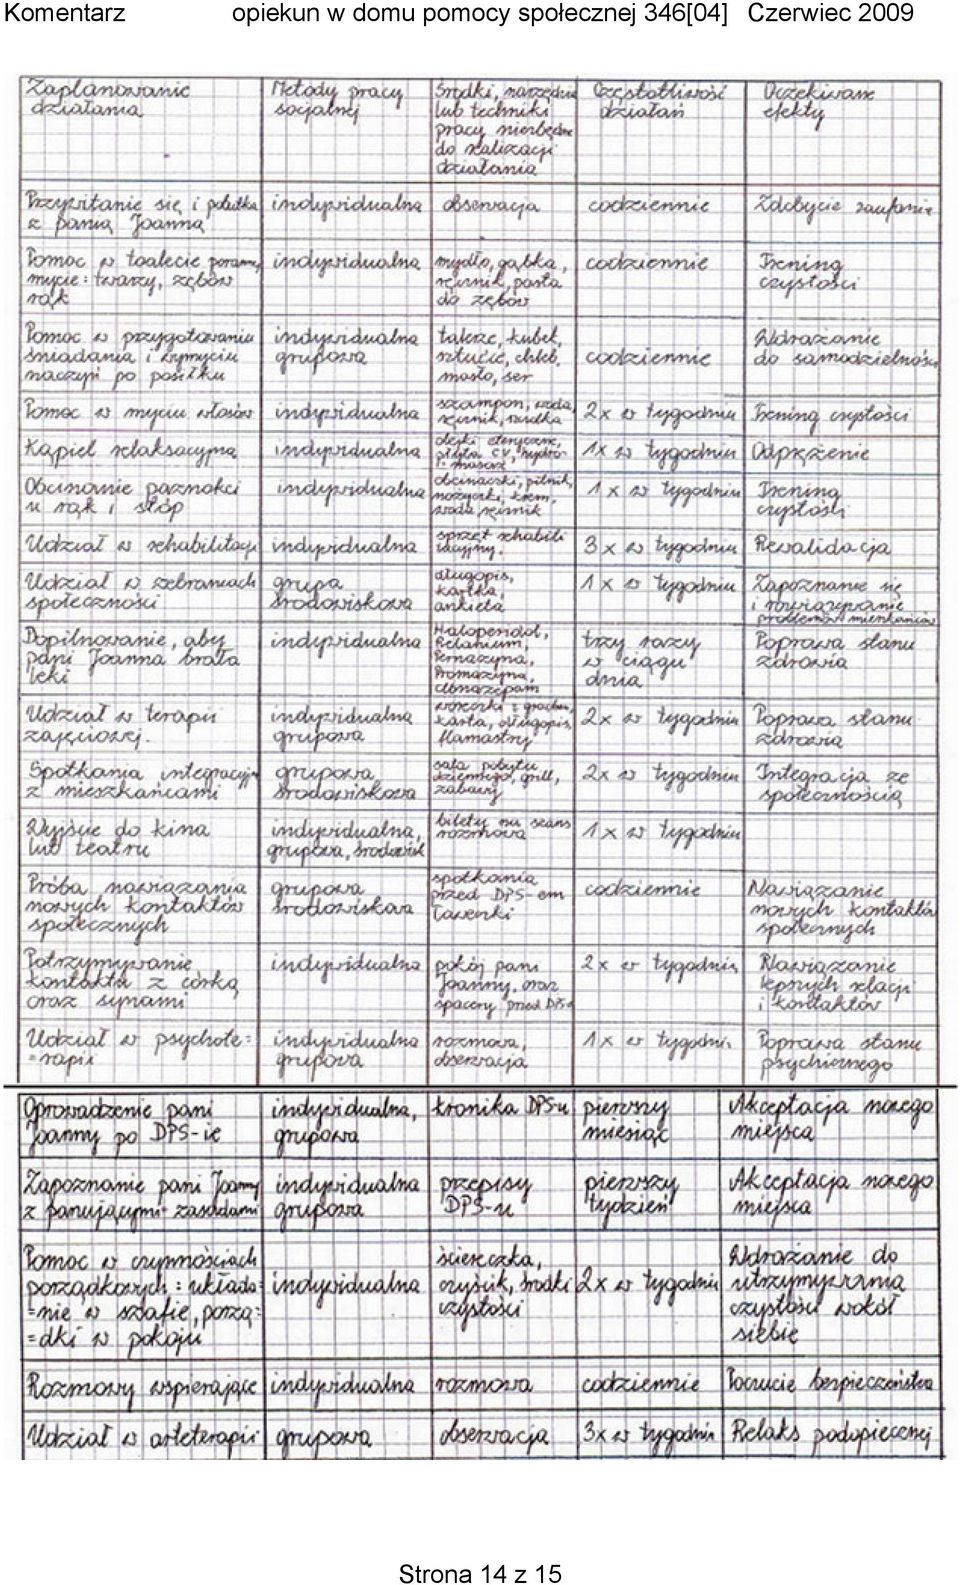 Komentarz opiekun w domu pomocy społecznej 346[04] Czerwiec 2009
Zaplanowanie działania | Metody pracy socjalnej | Środki, narzędzia lub techniki pracy niezbędne do realizacji działania | Częstotliwość działań | Oczekiwane efekty
Przywitanie się i pobudka z panią Joanną | indywidualna | obserwacja | codziennie | Zdobycie zaufania
Pomoc w toalecie porannej mycie: twarzy, zębów rąk | indywidualna | mydło, gąbka, ręcznik, pasta do zębów | codziennie | Trening czystości
Pomoc w przygotowaniu śniadania i zmyciu naczyń po posiłku | indywidualna grupowa | talerz, kubek, sztućce, chleb, masło, ser | codziennie | Wdrażanie do samodzielności
Pomoc w myciu włosów | indywidualna | szampon, woda, ręcznik, | 2x w tygodniu | Trening czystości
Kąpiel relaksacyjna | indywidualna | olejki eteryczne, płyta CD, hydro- masaż | 1x w tygodniu | Odprężenie
Obcinanie paznokci u rąk i stóp | indywidualna | obcinaczki, pilnik, nożyczki, krem, woda, ręcznik | 1x w tygodniu | Trening czystości
Udział w rehabilitacji | indywidualna | sprzęt rehabilitacyjny. | 3x w tygodniu | Rewalidacja
Udział w zebraniach społeczności | grupa środowiskowa | długopis, kartka, ankieta | 1x w tygodniu | Zapoznanie się i rozwiązywanie problemów mieszkańców
Dopilnowanie, aby pani Joanna brała leki | indywidualna | Haloperidol, Relanium, Pernazyna, Promazyna, Clonazepam | trzy razy w ciągu dnia | Poprawa stanu zdrowia
Udział w terapii zajęciowej. | indywidualna grupowa | woreczki z grochem, kartka, długopis, flamastry | 2x w tygodniu | Poprawa stanu zdrowia
Spotkania integracyjne z mieszkańcami | grupowa środowiskowa | sala pobytu dziennego, grill, zabawy | 2x w tygodniu | Integracja ze społecznością
Wyjście do kina lub teatru | indywidualna, grupowa, środowisk | bilety na seans rozmowa | 1x w tygodniu
Próba nawiązania nowych kontaktów społecznych | grupowa środowiskowa | spotkania przed DPS-em ławeczki | codziennie | Nawiązanie nowych kontaktów społecznych
Potrzymywanie kontaktu z córką oraz synami | indywidualna | pokój pani Joanny, oraz spacery przed DPS-em | 2x w tygodniu | Nawiązanie lepszych relacji i kontaktów
Udział w psychote= =rapii | indywidualna grupowa | rozmowa, obserwacja | 1x w tygodniu | Poprawa stanu psychicznego
Oprowadzenie pani Joanny po DPS-ie | indywidualna, grupowa | kronika DPS-u | pierwszy miesiąc | Akceptacja nowego miejsca
Zapoznanie pani Joanny z panującymi zasadami | indywidualna grupowa | przepisy DPS-u | pierwszy tydzień | Akceptacja nowego miejsca
Pomoc w czynnościach porządkowych: układa= =nie w szafie, porzą= =dki w pokoju | indywidualna | ściereczka, czyścik, środki czystości | 2x w tygodniu | Wdrażanie do utrzymywania czystości wokół siebie
Rozmowy wspierające | indywidualna | rozmowa | codziennie | Poczucie bezpieczeństwa
Udział w arteterapii | grupowa | obserwacja | 3x w tygodniu | Relaks podopiecznej
Strona 14 z 15